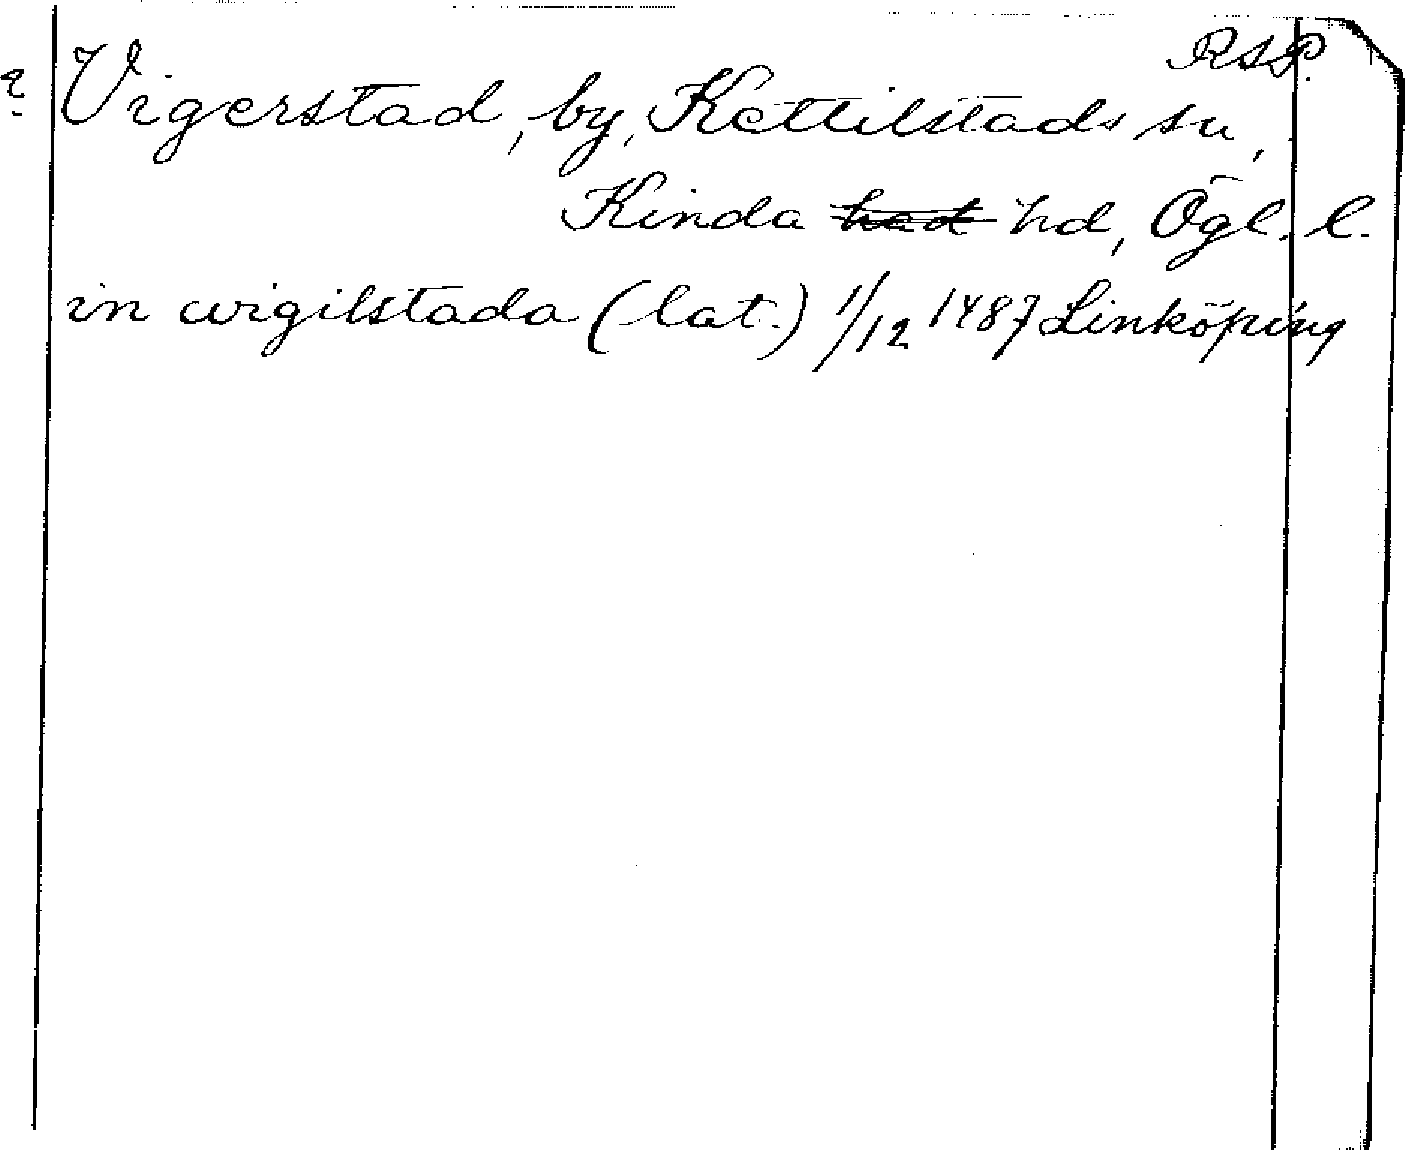 RAP.
? Vigerstad, by, Kettilstads sn,
Kinda had hd, Ögl. l.
in wigilstada (lat.) 1/12 1487 Linköping